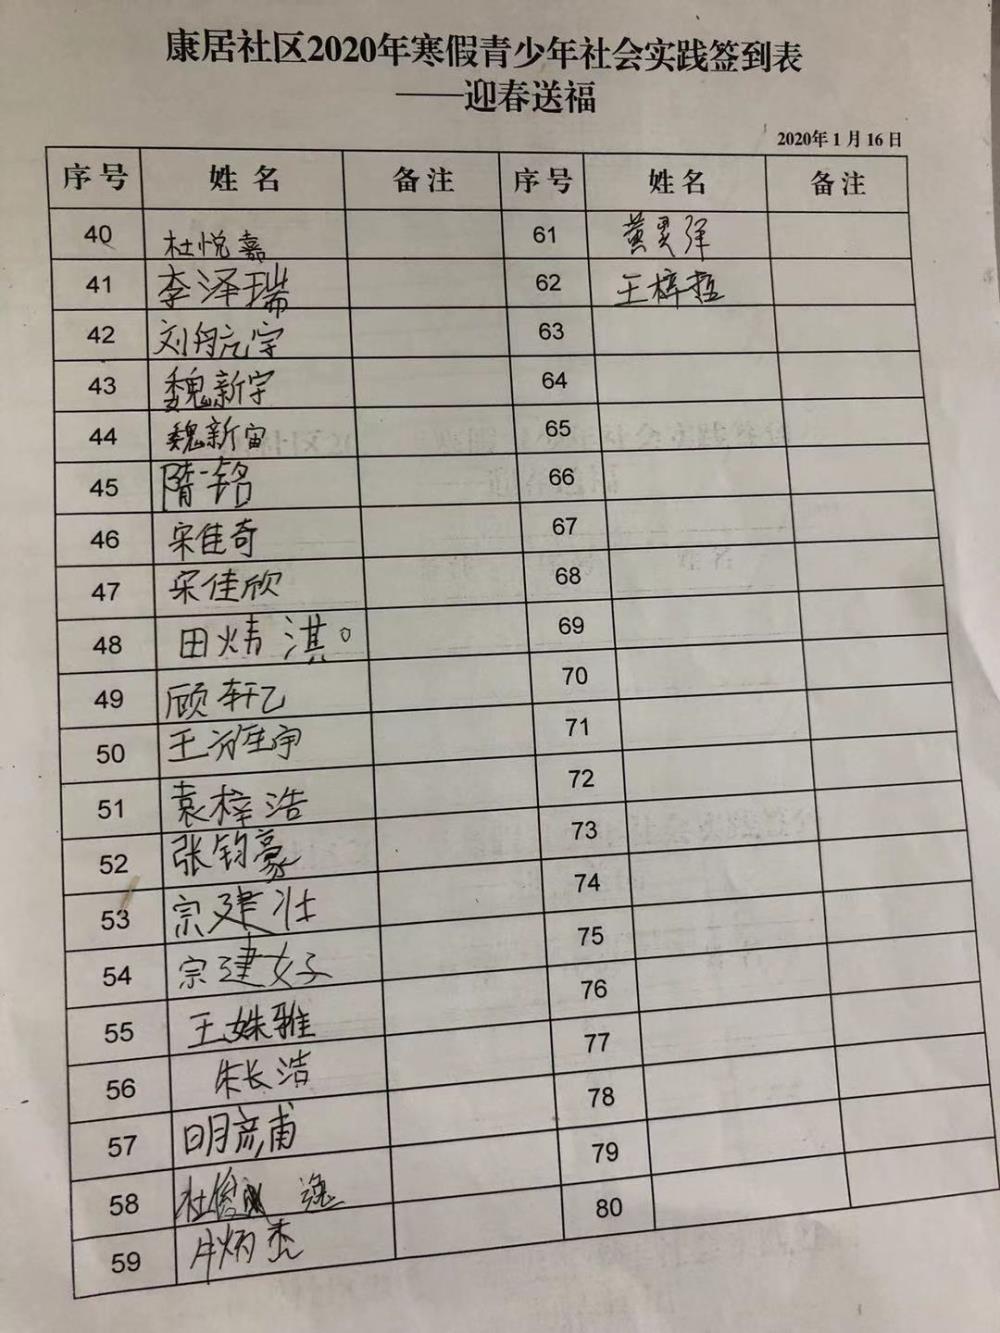 康居社区2020年寒假青少年社会实践签到表
——迎春送福
2020年1月16日
序号 姓名 备注 序号 姓名 备注
40 杜悦嘉 61 黄昊洋
41 李泽瑞 62 王梓哲
42 刘航宇 63
43 魏新宇 64
44 魏新宙 65
45 隋铭 66
46 宋佳奇 67
47 宋佳欣 68
48 田炜淇。 69
49 顾轩乙 70
50 王 宇 71
51 袁梓浩 72
52 张钧豪 73
53 宗建壮 74
54 宗建好 75
55 王姝雅 76
56 朱长浩 77
57 明彦甫 78
58 杜俊逸 79
59 牛炳杰 80